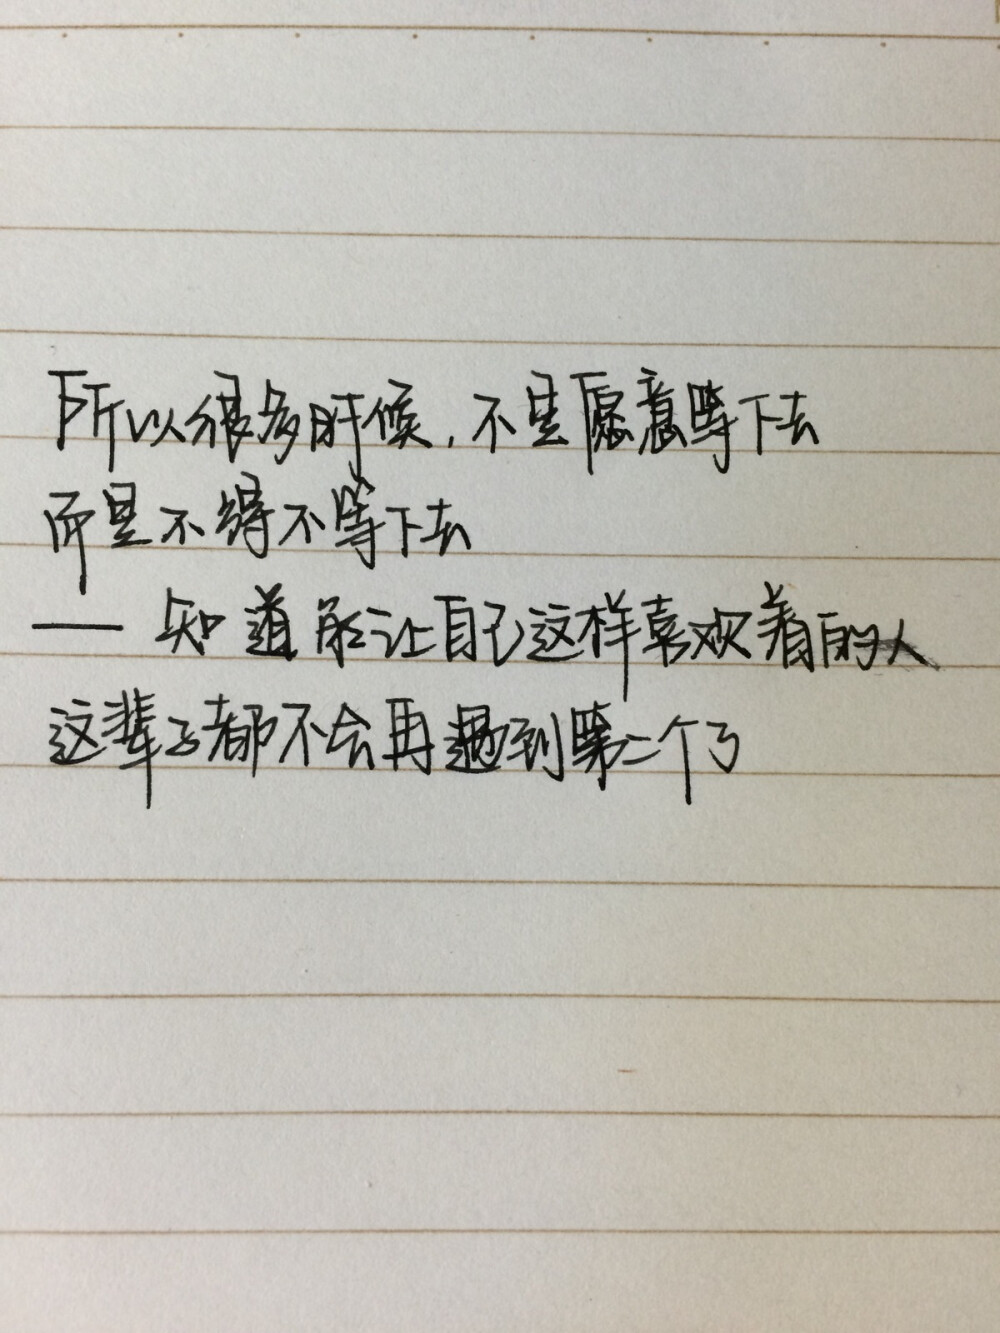 所以很多时候,不是愿意等下去
而是不得不等下去
——知道能让自己这样喜欢着的人
这辈子都不会再遇到第二个了